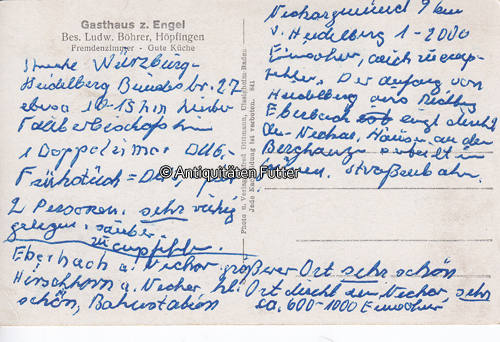 Gasthaus z. Engel
Bes. Ludw. Böhrer, Höpfingen
Fremdenzimmer - Gute Küche
Strecke Würzburg-
Heidelberg Bundesstr. 27
etwa 10-15 km hinter
Tauberbischofsheim
1 Doppelzimmer DM 6,-
Frühstück = DM
2 Personen. sehr ruhig
gelegen, sauber
zu empfehlen.
Eberbach a. Neckar größerer Ort sehr schön
Hirschhorn a. Neckar kl. Ort dicht am Neckar, sehr
schön, Bahnstation ca. 600-1000 Einwohner
Neckargemünd 9 km
v. Heidelberg 1-2000
Einwohner, auch zu emp-
fehlen. Der Anfang von
Heidelberg aus Richtung
Eberbach engl dicht
Neckar, Häuser an den
Berghängen
Straßenbahn.
Photo u. Verlag Alfred Dittmann, Ulzigheim Baden
Jede Nachbildung ist verboten. 841
© Antiquitäten Futter